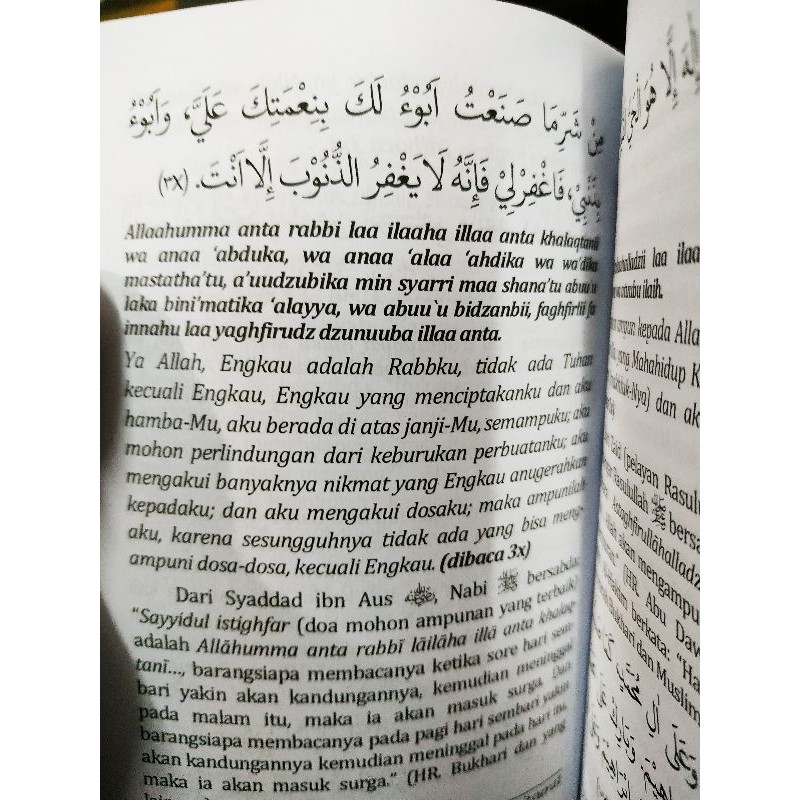 مِنْ شَرِّمَا صَنَعْتُ اَبُوْءُ لَكَ بِنِعْمَتِكَ عَلَيَّ، وَاَبُوْءُ
بِذَنْبِيْ، فَاغْفِرْلِيْ فَإِنَّهُ لَا يَغْفِرُ الذُّنُوْبَ إِلَّا اَنْتَ. (٣X)
Allaahumma anta rabbi laa ilaaha illaa anta khalaqtanii
wa anaa ‘abduka, wa anaa ‘alaa ‘ahdika wa wa’dika
mastatha’tu, a’uudzubika min syarri maa shana’tu abuu`u
laka bini’matika ‘alayya, wa abuu`u bidzanbii, faghfirlii fa
innahu laa yaghfirudz dzunuuba illaa anta.
Ya Allah, Engkau adalah Rabbku, tidak ada Tuhan
kecuali Engkau, Engkau yang menciptakanku dan aku
hamba-Mu, aku berada di atas janji-Mu, semampuku; aku
mohon perlindungan dari keburukan perbuatanku; aku
mengakui banyaknya nikmat yang Engkau anugerahkan
kepadaku; dan aku mengakui dosaku; maka ampunilah
aku, karena sesungguhnya tidak ada yang bisa meng-
ampuni dosa-dosa, kecuali Engkau. (dibaca 3x)
Dari Syaddad ibn Aus, Nabi ﷺ bersabda:
“Sayyidul istighfar (doa mohon ampunan yang terbaik)
adalah Allāhumma anta rabbī lāilāha illā anta khalaq-
tanī..., barangsiapa membacanya ketika sore hari sem-
bari yakin akan kandungannya, kemudian meninggal
pada malam itu, maka ia akan masuk surga. Dan
barangsiapa membacanya pada pagi hari sembari yakin
akan kandungannya kemudian meninggal pada hari itu,
maka ia akan masuk surga.” (HR. Bukhari dan yang
إِلَّا هُوَ الْحَيُّ
laa ilaa
ilaih.
ampun kepada Alla
yang Mahahidup K
dan ak
(pelayan Rasulu
Rasulullah ﷺ bersa
akan mengampu
(HR. Abu Daw
berkata: “Ha
Bukhari dan Muslim